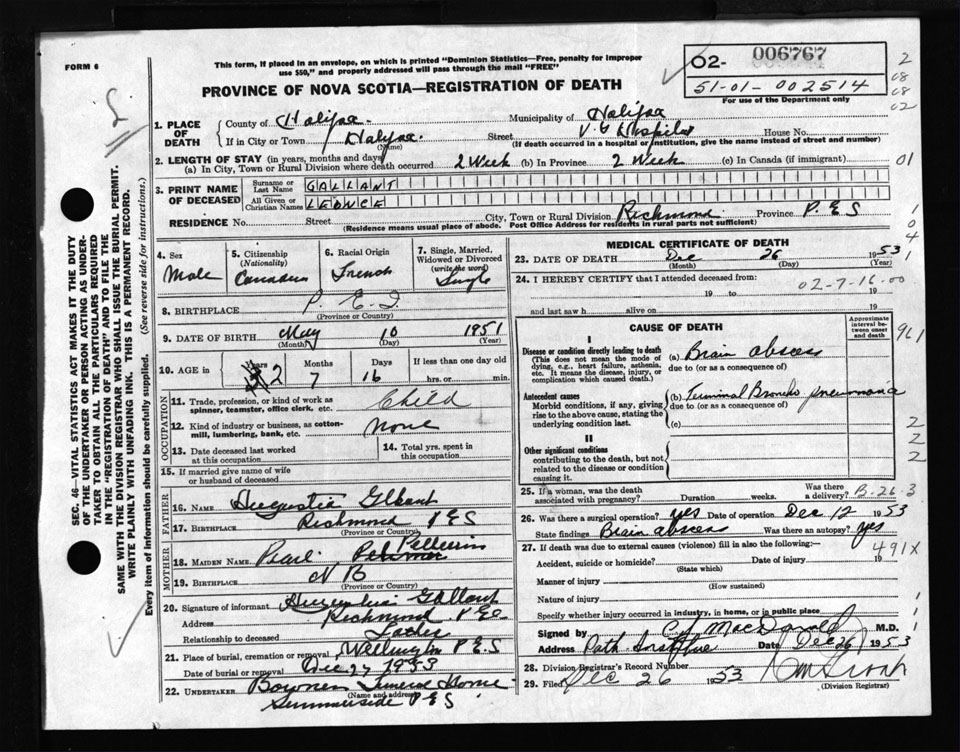 FORM 6
This form, if placed in an envelope, on which is printed "Dominion Statistics—Free, penalty for improper
use $50," and properly addressed will pass through the mail "FREE"
PROVINCE OF NOVA SCOTIA—REGISTRATION OF DEATH
02- 006767
51-01-002514
For use of the Department only
2
08
08
02
1. PLACE OF DEATH
County of Halifax. Municipality of Halifax
If in City or Town Halifax. Street V. G Hospital House No.
(Name) (If death occurred in a hospital or institution, give the name instead of street and number)
2. LENGTH OF STAY (in years, months and days)
(a) In City, Town or Rural Division where death occurred 2 Week (b) In Province 2 Week (c) In Canada (if immigrant) 01
3. PRINT NAME OF DECEASED
Surname or Last Name GALLANT
All Given or Christian Names LEONCE
RESIDENCE No. Street City, Town or Rural Division Richmond Province P.E.I
(Residence means usual place of abode. Post Office Address for residents in rural parts not sufficient)
1
0
4
4. Sex Male
5. Citizenship (Nationality) Canadian
6. Racial Origin French
7. Single, Married, Widowed or Divorced (write the word) Single
8. BIRTHPLACE P. E. I
(Province or Country)
9. DATE OF BIRTH May 10 1951
(Month) (Day) (Year)
10. AGE in Years 2 Months 7 Days 16 If less than one day old
hrs. or min.
OCCUPATION
11. Trade, profession, or kind of work as spinner, teamster, office clerk, etc. Child
12. Kind of industry or business, as cotton-mill, lumbering, bank, etc. None
13. Date deceased last worked at this occupation
14. Total yrs. spent in this occupation
15. If married give name of wife or husband of deceased
FATHER
16. NAME Gallant
17. BIRTHPLACE Richmond P E I
(Province or Country)
MOTHER
18. MAIDEN NAME Pearl Pellerin
19. BIRTHPLACE N B
(Province or Country)
20. Signature of informant Gallant
Address Richmond P E I
Relationship to deceased Father
21. Place of burial, cremation or removal Wellington P E I
Date of burial or removal Dec 27 1953
22. UNDERTAKER Funeral Home
(Name and address)
Summerside P E I
MEDICAL CERTIFICATE OF DEATH
23. DATE OF DEATH Dec 26 1953
(Month) (Day) (Year)
1
24. I HEREBY CERTIFY that I attended deceased from:
02-7-16-00
19 to 19
and last saw h alive on 19
CAUSE OF DEATH
Approximate interval between onset and death
961
I
Disease or condition directly leading to death (a) Brain abscess
(This does not mean the mode of dying, e.g., heart failure, asthenia, etc. It means the disease, injury, or complication which caused death.)
due to (or as a consequence of)
Antecedent causes (b) Terminal Broncho pneumonia
Morbid conditions, if any, giving rise to the above cause, stating the underlying condition last.
due to (or as a consequence of)
(c)
II
Other significant conditions
contributing to the death, but not related to the disease or condition causing it.
2
2
2
25. If a woman, was the death associated with pregnancy? Duration weeks. Was there a delivery? B-26-3
26. Was there a surgical operation? yes Date of operation Dec 12 1953
State findings Brain abscess Was there an autopsy? yes
27. If death was due to external causes (violence) fill in also the following:—
491X
Accident, suicide or homicide? Date of injury 19
(State which)
Manner of injury
(How sustained)
Nature of injury
Specify whether injury occurred in industry, in home, or in public place
1
1
Signed by MacDonald M.D. 1
Address Path Institute Date Dec 26 1953
28. Division Registrar's Record Number
29. Filed Dec 26 1953
(Division Registrar)
SEC. 46—VITAL STATISTICS ACT MAKES IT THE DUTY
OF THE UNDERTAKER OR PERSON ACTING AS UNDER-
TAKER TO OBTAIN ALL THE PARTICULARS REQUIRED
IN THE "REGISTRATION OF DEATH" AND TO FILE THE
SAME WITH THE DIVISION REGISTRAR WHO SHALL ISSUE THE BURIAL PERMIT.
WRITE PLAINLY WITH UNFADING INK. THIS IS A PERMANENT RECORD.
Every item of information should be carefully supplied. (See reverse side for instructions.)